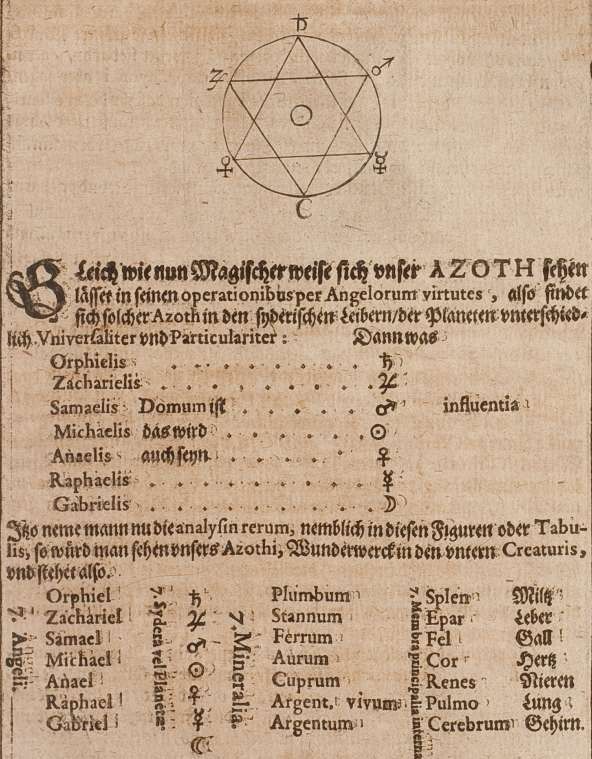 ♄
♃ ♂
☉
♀ ☿
C
Gleich wie nun Magischer weise sich vnser AZOTH sehen
lässet in seinen operationibus per Angelorum virtutes, also findet
sich solcher Azoth in den syderischen Leibern/der Planeten vnterschied-
lich Vniversaliter vnd Particulariter: Dann was
Orphielis . . . . . . . ♄
Zacharielis . . . . . . ♃
Samaelis Domum ist . . . . . . ♂ influentia
Michaelis das wird . . . . . . ☉
Anaelis auch seyn . . . . . . ♀
Raphaelis . . . . . . . ☿
Gabrielis . . . . . . . ☽
Itzo neme mann nu die analysin rerum, nemblich in diesen Figuren oder Tabu-
lis, so würd man sehen vnsers Azothi, Wunderwerck in den vntern Creaturis,
vnd stehet also.
7. Angeli.
Orphiel
Zachariel
Samael
Michael
Anael
Raphael
Gabriel
7. Sydera vel Planetæ
♄
♃
♂
☉
♀
☿
☾
7. Mineralia.
Plumbum
Stannum
Ferrum
Aurum
Cuprum
Argent. vivum
Argentum
7. Membra principalia interna
Splen Miltz
Epar Leber
Fel Gall
Cor Hertz
Renes Nieren
Pulmo Lung
Cerebrum Gehirn.